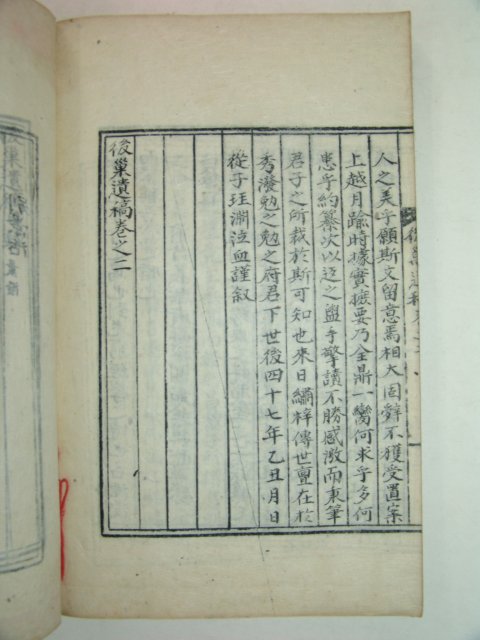 人之美乎願斯文留意焉相大固辭不獲受置案
上越月踰時據實撮要乃全鼎一臠何求乎多何
患乎約纂次以迄之盥手擎讀不勝感激而秉筆
君子之所裁於斯可知也來日繡梓傳世亶在於
秀潑勉之勉之府君下世後四十七年乙丑月日
從子珏淵泣血謹叙
後巢遺稿卷之二